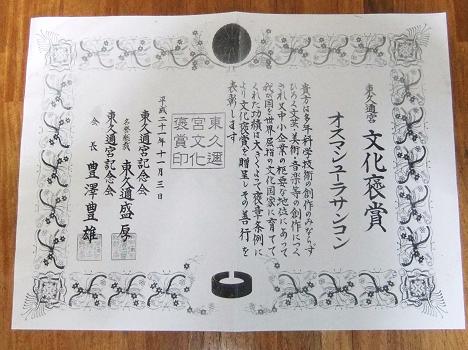 東久邇宮 文化褒賞
オスマンユーラサンコン
貴方は多年科学技術の創作のみならず
ひろく文芸、美術、音楽等の創作につく
され又中小企業の枢要な地位にあって
我が国を世界屈指の文化国家に育てて
くれた功績は大きくよって褒章条例に
より文化褒賞を贈呈しその善行を
表彰します
東久邇
宮文化
褒賞印
平成二十一年十一月三日
東久邇宮記念会
名誉総裁 東久邇盛厚
東久邇宮記念会
会長 豊澤豊雄